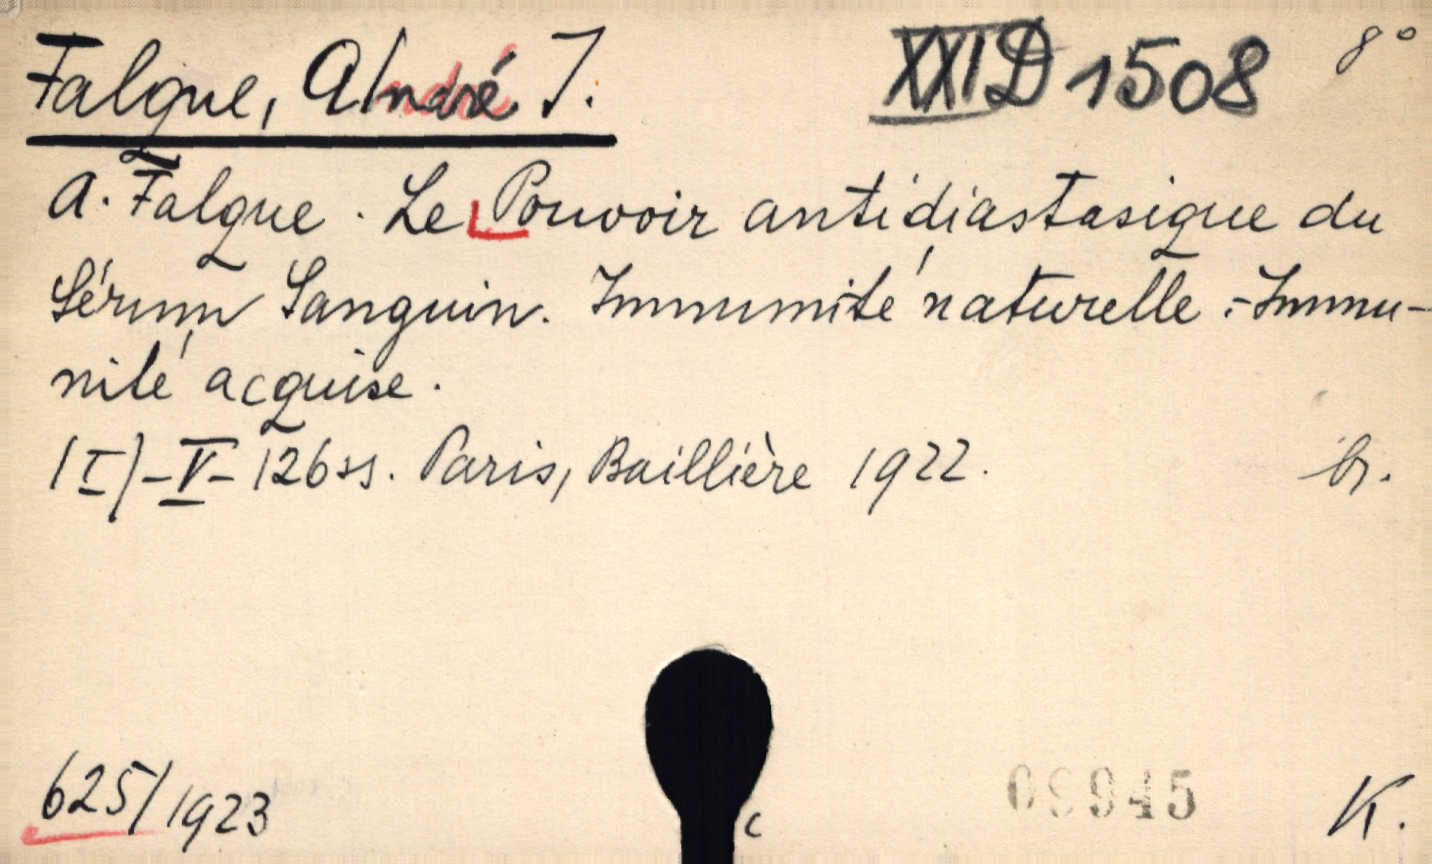 Falgue, André J. XXI D 1508 8°
A. Falgue. Le Pouvoir antidiastasique du
Sérum Sanguin. Immunité naturelle.-Immu-
nité acquise.
(I)-V-126 ss. Paris, Baillière 1922. br.
625/1923 c 09945 K.